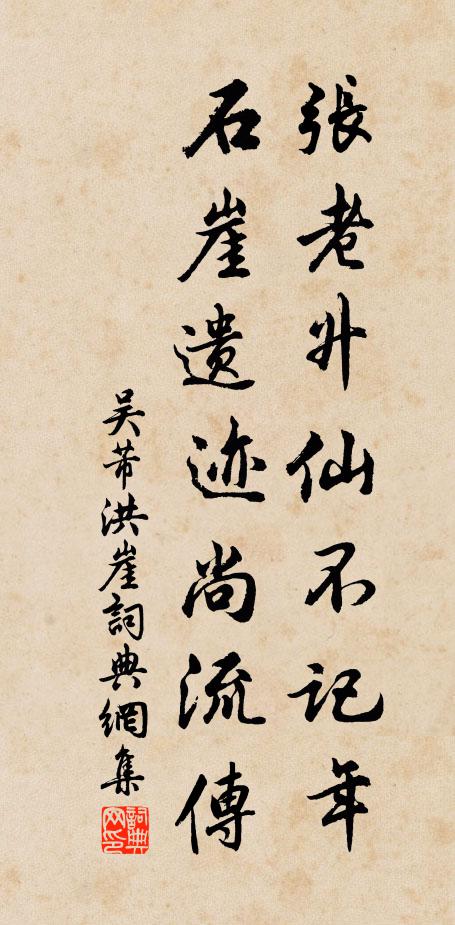 張老升仙不記年
石崖遺迹尚流傳
吴芾洪崖詞典網集
詞典网印